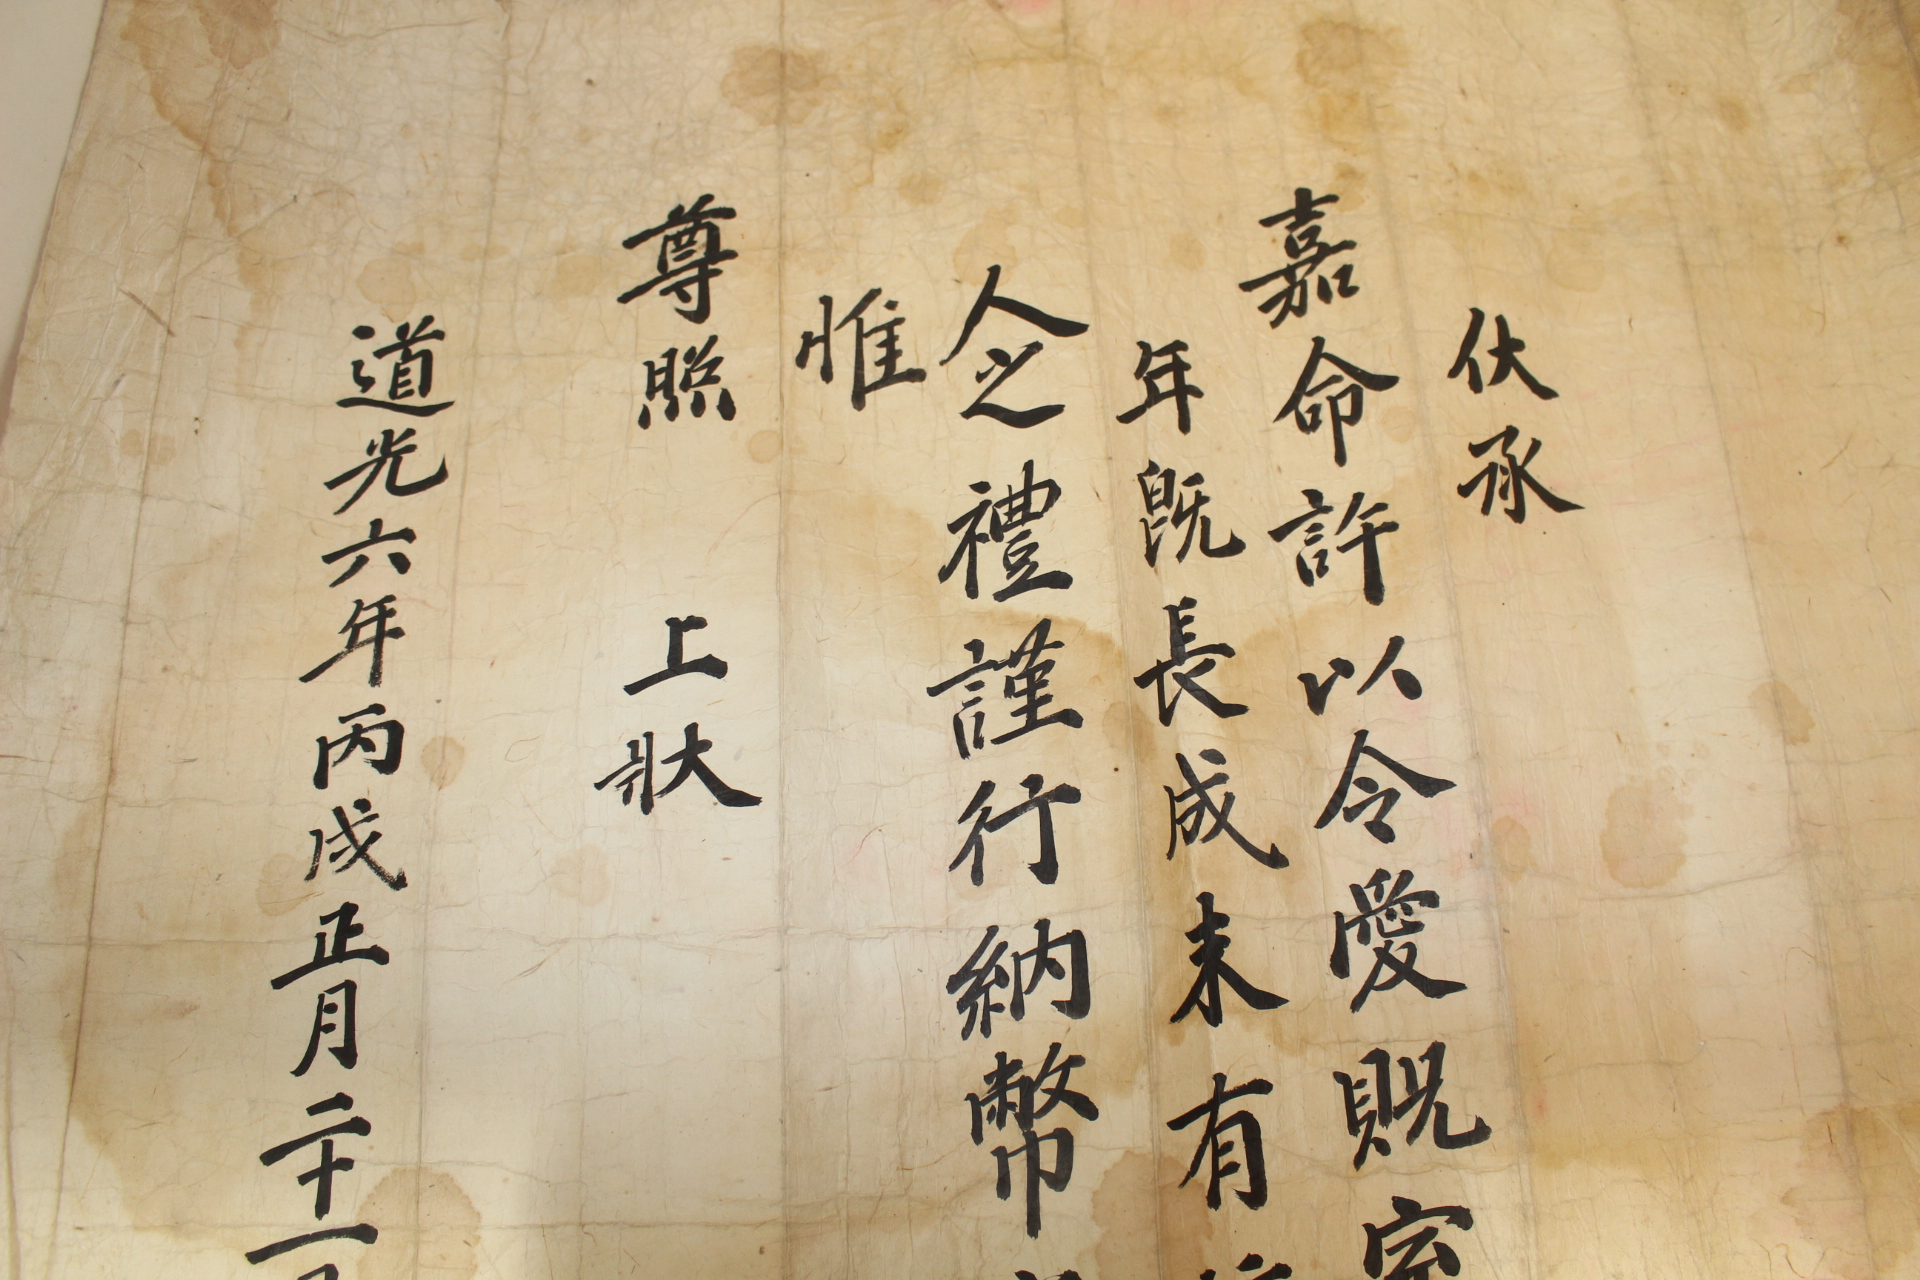 伏承
嘉命許以令愛貺室
年既長成未有
人之禮謹行納幣
惟
尊照 上狀
道光六年丙戌正月二十一日